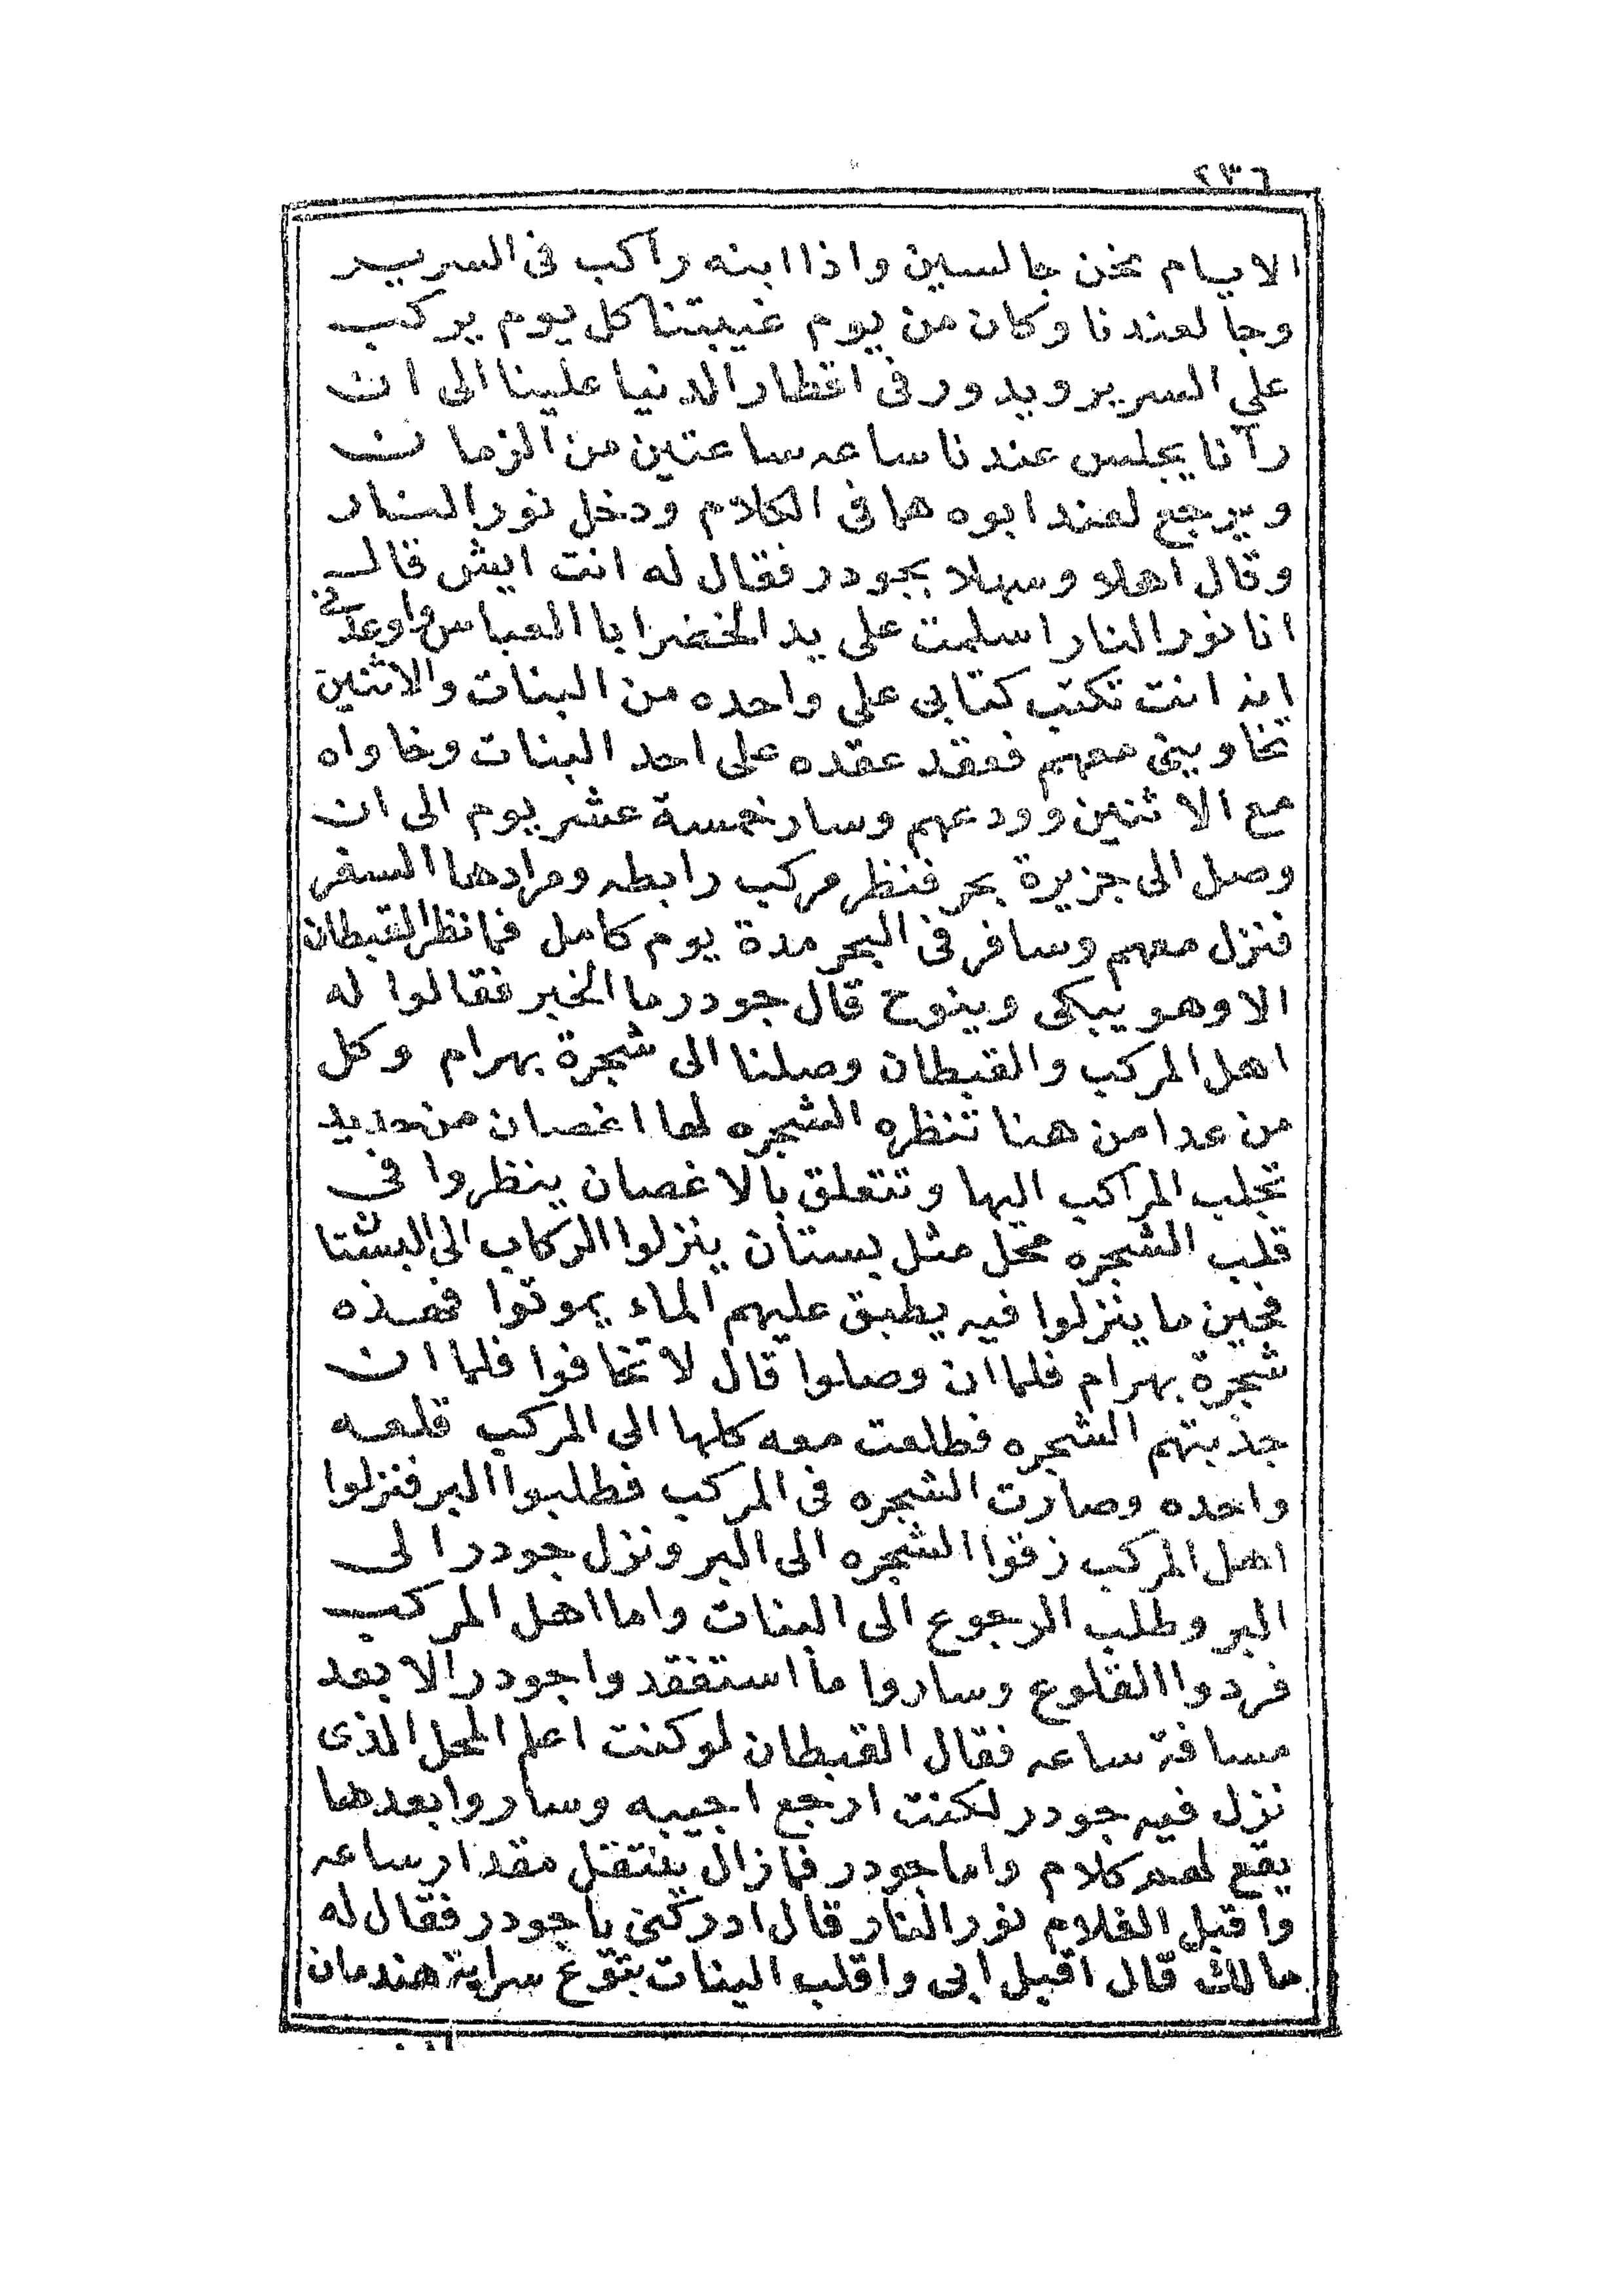 ٢٣٦
الايام نحن جالسين واذا ابنه راكب فى السرير
وجا لعندنا وكان من يوم غيبتنا كل يوم يركب
على السرير ويدور فى اقطار الدنيا علينا الى ان
رآنا يجلس عندنا ساعه ساعتين من الزمان
ويرجع لعند ابوه هما فى الكلام ودخل نور النار
وقال اهلا وسهلا بجودر فقال له انت ايش قال
انا نور النار اسلمت على يد الخضر ابا العباس واوعدنى
انه انت تكتب كتابى على واحده من البنات والاثنين
تخاوينى معهم فعقد عقده على احد البنات وخاواه
مع الاثنين وودعهم وسار خمسة عشر يوم الى ان
وصل الى جزيرة بحر فنظر مركب رابطه ومرادها السفر
فنزل معهم وسافر فى البحر مدة يوم كامل فما نظر القبطان
الا وهو يبكى وينوح قال جودر ما الخبر فقالوا له
اهل المركب والقبطان وصلنا الى شجرة بهرام وكل
من عدا من هنا تنظره الشجره لها اغصان من حديد
تجلب المراكب اليها وتتعلق بالاغصان ينظروا فى
قلب الشجره محل مثل بستان ينزلوا الركاب الى البستان
فحين ما ينزلوا فيه يطبق عليهم الماء يموتوا فهذه
شجرة بهرام فلما ان وصلوا قال لا تخافوا فلما ان
جذبتهم الشجره فطلعت معه كلها الى المركب قلعه
واحده وصارت الشجره فى المركب فطلبوا البر فنزلوا
اهل المركب زقوا الشجره الى البر ونزل جودر الى
البر وطلب الرجوع الى البنات واما اهل المركب
فردوا القلوع وساروا ما استفقدوا جودر الا بعد
مسافة ساعه فقال القبطان لو كنت اعلم المحل الذى
نزل فيه جودر لكنت ارجع اجيبه وساروا بعدها
يقع لهم كلام واما جودر فما زال ينتقل مقدار ساعه
واقبل الغلام نور النار قال ادركنى يا جودر فقال له
مالك قال اقبل ابى واقلب البنات بتوع سراية هندمان